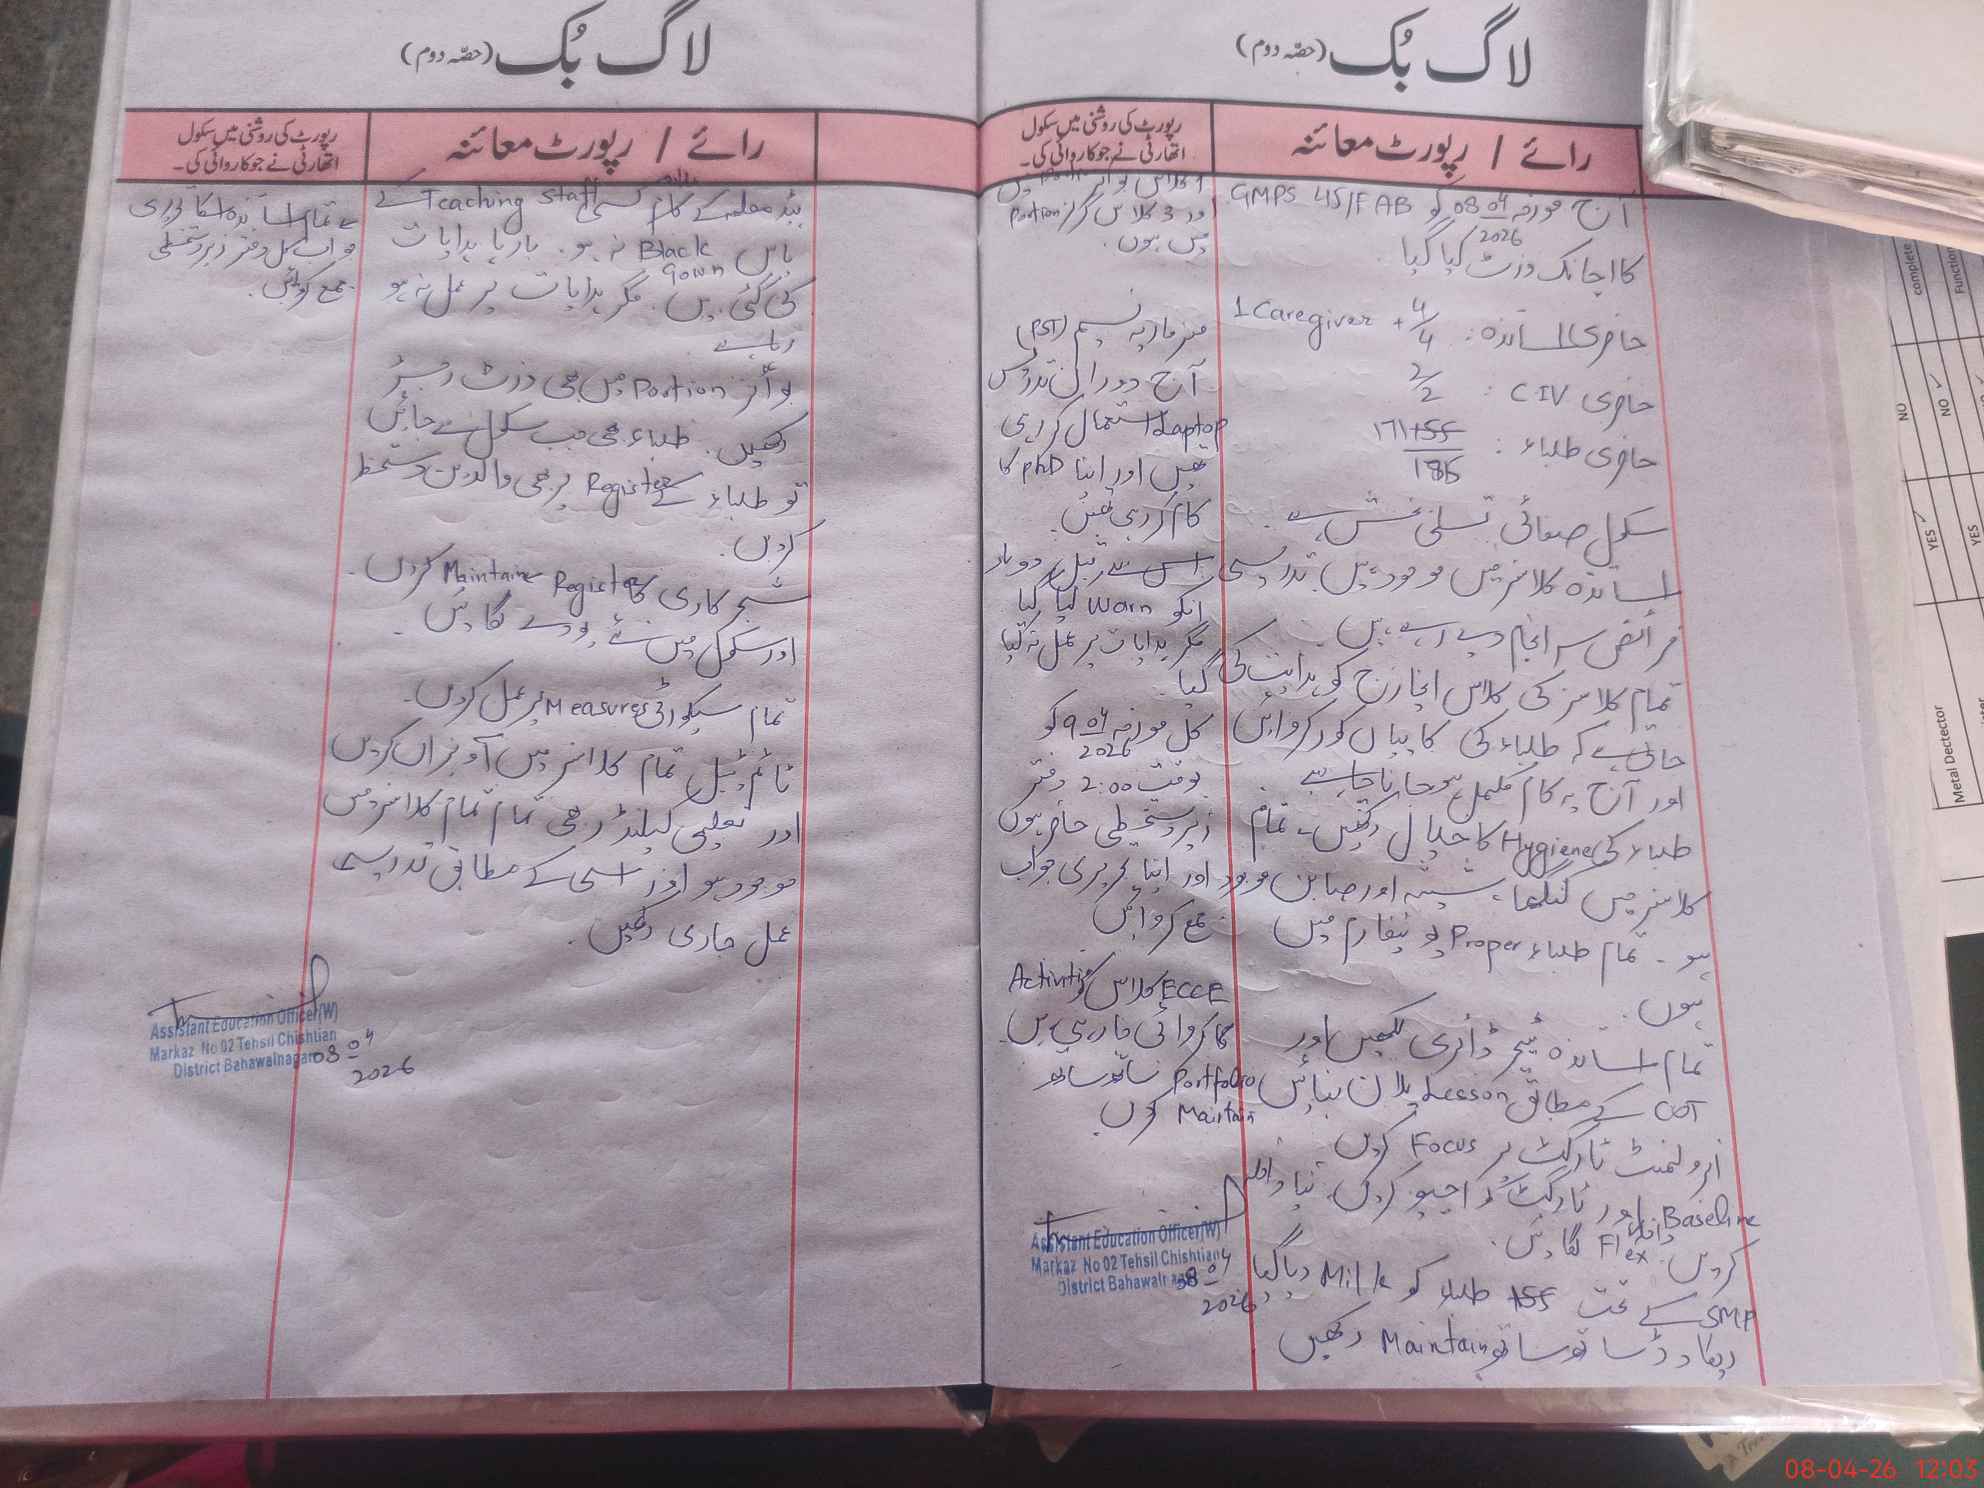 لاگ بُک (حصّہ دوم)
رائے / رپورٹ معائنہ
رپورٹ کی روشنی میں سکول
اتھارٹی نے جو کاروائی کی۔
آج مورخہ 08 04 2026 کو GMPS 45/FAB
کا اچانک وزٹ کیا گیا۔
حاضری اساتذہ: 4/4 + 1 Caregiver
حاضری CIV : 2/2
حاضری طلباء :
سکول صفائی تسلی بخش ہے۔
اساتذہ کلاسز میں موجود ہیں تدریسی
فرائض سر انجام دے رہے ہیں۔
تمام کلاسز کی کلاس انچارج کو ہدایت کی
جاتی ہے کہ طلباء کی کاپیاں کور کروائیں
اور آج یہ کام مکمل ہو جانا چاہیے
طلباء کی Hygiene کا خیال رکھیں۔ تمام
کلاسز میں کنگھا، شیشہ اور صابن موجود
ہو۔ تمام طلباء Proper یونیفارم میں
ہوں۔
تمام اساتذہ ٹیچر ڈائری لکھیں اور
COT کے مطابق Lesson پلان بنائیں
انرولمنٹ ٹارگٹ پر Focus کریں
Baseline اور ٹارگٹ کو اچیو کریں۔ نیا داخلہ
کریں۔ داخلہ Flex لگائیں۔
SMP کے تحت 155 طلباء کو Milk دیا گیا
ریکارڈ ساتھ ساتھ Maintain رکھیں
اور 3 کلاس گرلز Portion
میں ہوں۔
مسز ماریہ نسیم (PST)
آج دوران تدریس
Laptop استعمال کر رہی
تھیں اور اپنا PhD کا
کام کر رہی تھیں۔
اس سے قبل دو بار
انکو Warn کیا گیا
مگر ہدایات پر عمل نہ کیا
گیا۔
کل مورخہ 9 04 2026 کو
بوقت 2:00 دفتر
زیر دستخطی حاضر ہوں
اور اپنا تحریری جواب
جمع کروائیں
ECCE کلاس کو Activities
کروائی جا رہی ہیں۔
Portfolio ساتھ ساتھ
Maintain کریں۔
Assistant Education Officer(W)
Markaz No 02 Tehsil Chishtian
District Bahawalnagar
08 04
2026
لاگ بُک (حصّہ دوم)
رائے / رپورٹ معائنہ
رپورٹ کی روشنی میں سکول
اتھارٹی نے جو کاروائی کی۔
ہیڈ معلمہ کے علاوہ کسی Teaching Staff کے
پاس Black gown نہ ہو۔ بارہا ہدایات
کی گئی ہیں۔ مگر ہدایات پر عمل نہ ہو
رہا ہے
بوائز Portion میں بھی وزٹ رجسٹر
رکھیں۔ طلباء بھی جب سکول سے جائیں
تو طلباء کے Register پر بھی والدین دستخط
کریں۔
شجر کاری کا Register Maintain کریں۔
اور سکول میں نئے پودے لگائیں۔
تمام سیکورٹی Measures پر عمل کریں۔
ٹائم ٹیبل تمام کلاسز میں آویزاں کریں
اور تعلیمی کیلنڈر بھی تمام تمام کلاسز میں
موجود ہو اور اسی کے مطابق تدریسی
عمل جاری رکھیں۔
تمام اساتذہ اسکا تحریری
جواب کل دفتر زیر دستخطی
جمع کروائیں۔
Assistant Education Officer(W)
Markaz No 02 Tehsil Chishtian
District Bahawalnagar
08 04
2026
complete
Function
NO
NO
YES
YES
Metal Dectector
08-04-26 12:03